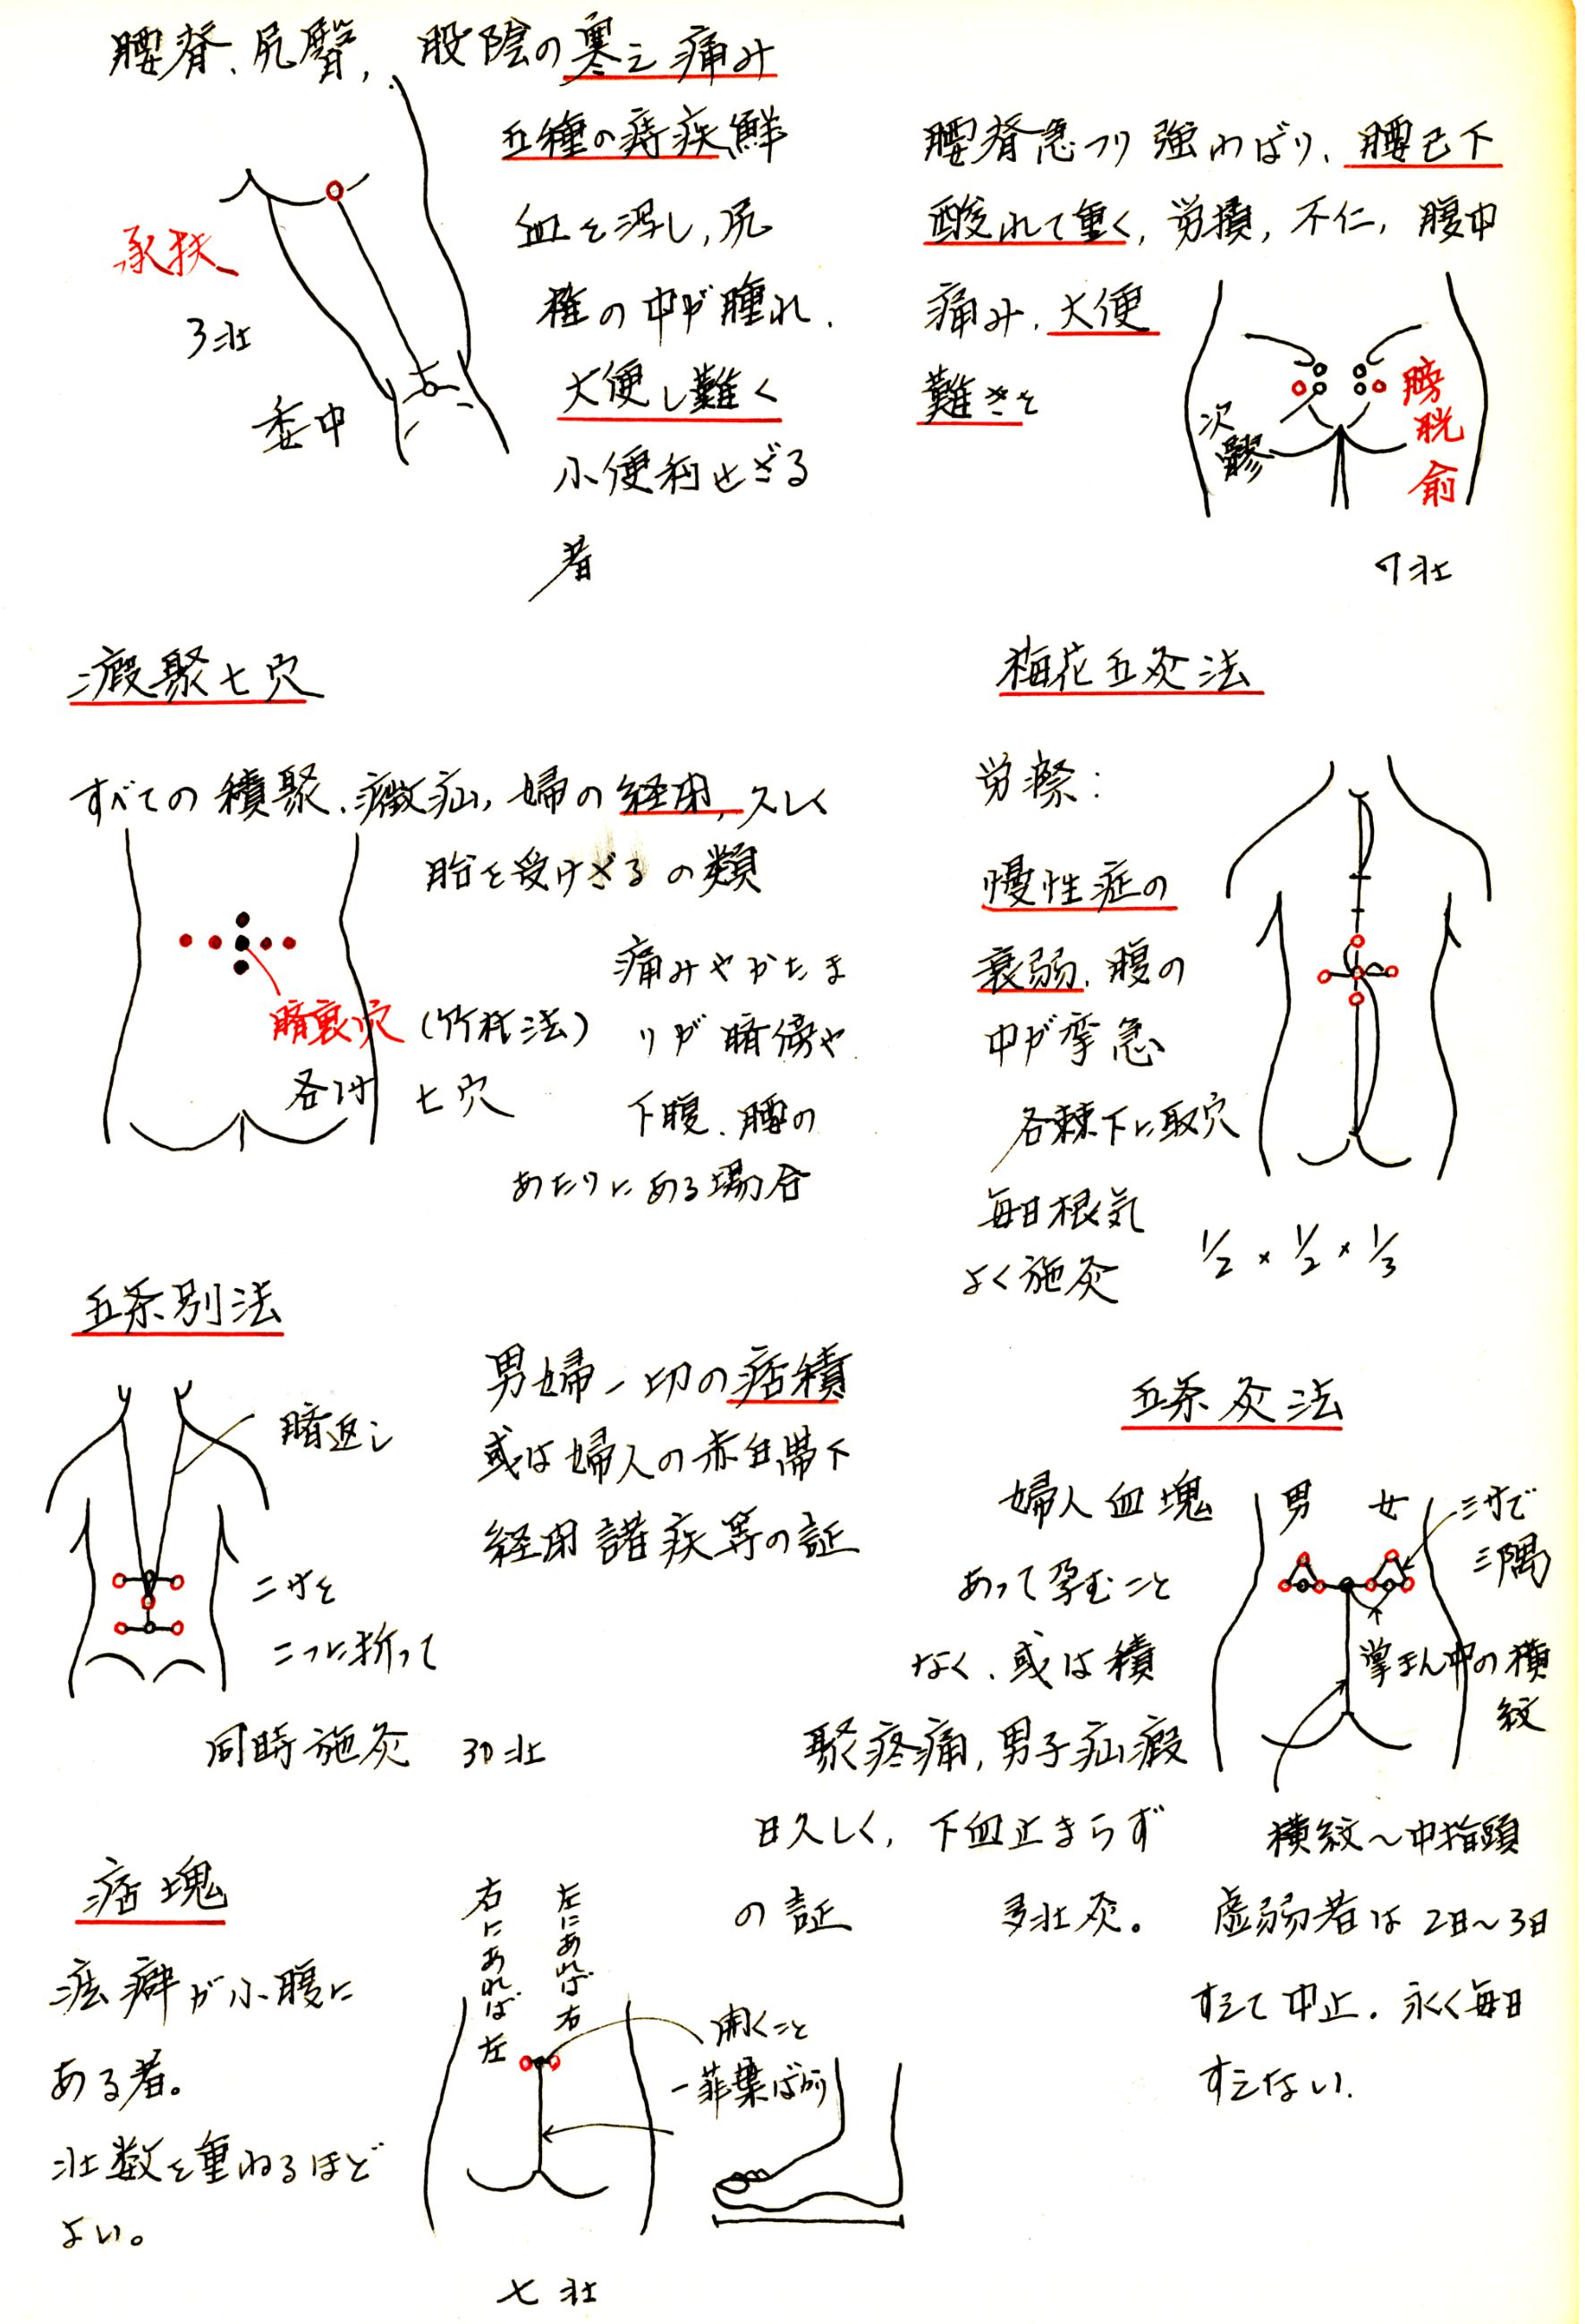 腰脊、尻臀、股陰の寒え痛み
五種の痔疾鮮
血を瀉し、尻
椎の中が腫れ、
大便し難く
小便利せざる
者
承扶
3壮
委中
腰脊急つり強わばり、腰已下
酸れて重く、労損、不仁、腹中
痛み、大便
難きを
次髎
膀胱俞
7壮
瘕聚七穴
すべての積聚、癥疝、婦の経閉、久しく
胎を受けざるの類
痛みやかたま
りが臍傍や
下腹、腰の
あたりにある場合
臍裏穴(竹杖法)
各1寸 七穴
梅花五灸法
労瘵:
慢性症の
衰弱、腹の
中が挛急
各棘下に取穴
毎日根気
よく施灸
1/2 × 1/2 × 1/3
五条別法
臍返し
二寸を
二つに折って
同時施灸 30壮
男婦一切の痞積
或は婦人の赤白帯下
経閉諸疾等の証
五条灸法
婦人血塊
あって孕むこと
なく、或は積
聚疼痛、男子疝瘕
日久しく、下血止まらず
の証
多壮灸。
男 女
三寸で
三隅
掌まん中の横
紋
横紋〜中指頭
虚弱者は2日〜3日
すえて中止。永く毎日
すえない.
痞塊
痃癖が小腹に
ある者。
壮数を重ねるほど
よい。
右にあれば左
左にあれば右
開くこと
一韮葉ばかり
七壮